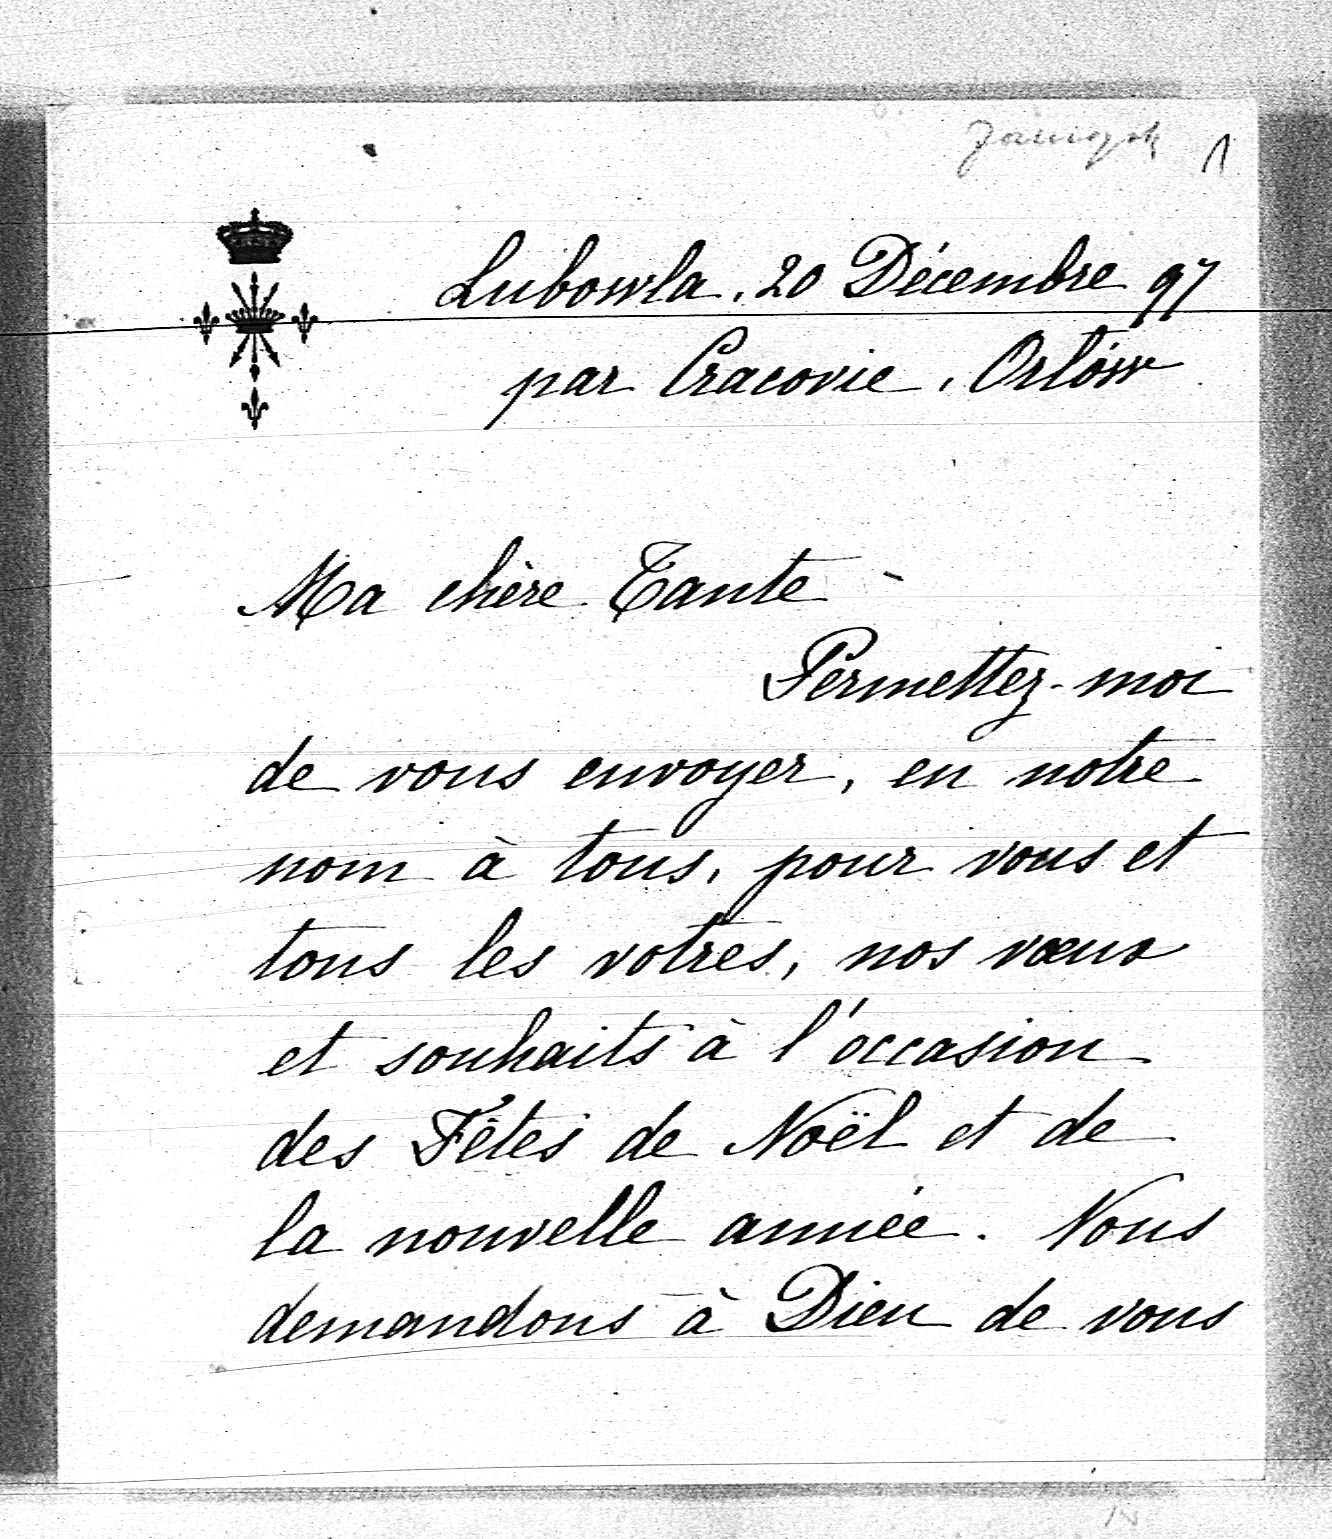 1
Lubowla, 20 Décembre 97
par Cracovie, Orlów
Ma chère Tante -
Permettez-moi
de vous envoyer, en notre
nom à tous, pour vous et
tous les votres, nos vœux
et souhaits à l'occasion
des Fêtes de Noël et de
la nouvelle année. Nous
demandons à Dieu de vous